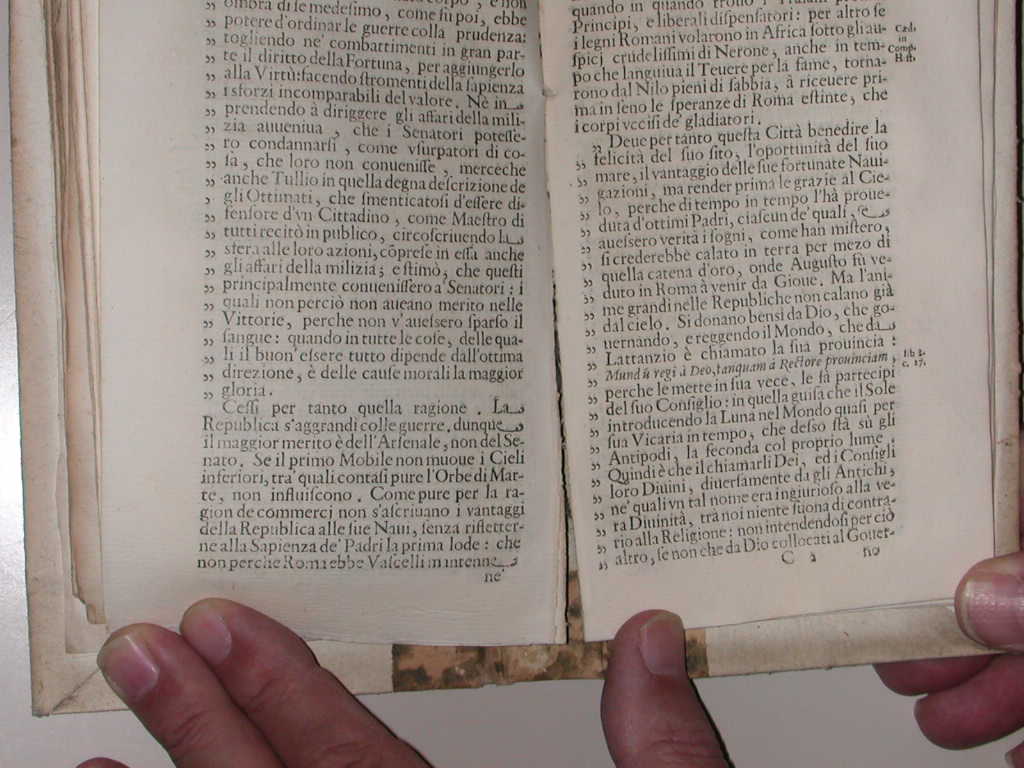 ombra di se medesimo, come fu poi, ebbe
„ potere d'ordinar le guerre colla prudenza:
„ togliendo ne' combattimenti in gran par-
„ te il diritto della Fortuna, per aggiungerlo
„ alla Virtù: facendo stromenti della sapienza
„ i sforzi incomparabili del valore. Nè in
„ prendendo à diriggere gli affari della mili-
„ zia auueniua, che i Senatori potesse-
„ ro condannarsi, come vsurpatori di co-
„ sa, che loro non conuenisse, merceche
„ anche Tullio in quella degna descrizione de
„ gli Ottimati, che smenticatosi d'essere di-
„ fensore d'vn Cittadino, come Maestro di
„ tutti recitò in publico, circoscriuendo la
„ sfera alle loro azioni, cõprese in essa anche
„ gli affari della milizia; e stimò, che questi
„ principalmente conuenissero a' Senatori: i
„ quali non perciò non aueano merito nelle
„ Vittorie, perche non v'auessero sparso il
„ sangue: quando in tutte le cose, delle qua-
„ li il buon'essere tutto dipende dall'ottima
„ direzione, è delle cause morali la maggior
„ gloria.
Cessi per tanto quella ragione. La
Republica s'aggrandì colle guerre, dunque
il maggior merito è dell'Arsenale, non del Se-
nato. Se il primo Mobile non muoue i Cieli
inferiori, tra' quali contasi pure l'Orbe di Mar-
te, non influiscono. Come pure per la ra-
gion de commerci non s'ascriuano i vantaggi
della Republica alle sue Naui, senza riflètter-
ne alla Sapienza de' Padri la prima lode: che
non perche Roma ebbe Vascelli in intenne
ne'
quando in quando trouò i Traiani
Principi, e liberali dispensatori: per altro se
i legni Romani volarono in Africa sotto gli au-
spici crudelissimi di Nerone, anche in tem-
po che languiua il Teuere per la fame, torna-
rono dal Nilo pieni di sabbia, à riceuere pri-
ma in seno le speranze di Roma estinte, che
i corpi vccisi de' gladiatori.
„ Deue per tanto questa Città benedire la
„ felicità del suo sito, l'oportunità del suo
„ mare, il vantaggio delle sue fortunate Naui-
„ gazioni, ma render prima le grazie al Cie-
„ lo, perche di tempo in tempo l'hà proue-
„ duta d'ottimi Padri, ciascun de' quali, se
„ auessero verità i sogni, come han mistero,
„ si crederebbe calato in terra per mezo di
„ quella catena d'oro, onde Augusto fù ve-
„ duto in Roma à venir da Gioue. Ma l'ani-
„ me grandi nelle Republiche non calano già
„ dal cielo. Si donano bensì da Dio, che go-
„ uernando, e reggendo il Mondo, che da
„ Lattanzio è chiamato la sua prouincia:
„ Mundū regi à Deo, tanquam à Rectore prouinciam,
„ perche le mette in sua vece, le fà partecipi
„ del suo Consiglio: in quella guisa che il Sole
„ introducendo la Luna nel Mondo quasi per
„ sua Vicaria in tempo, che desso stà sù gli
„ Antipodi, la feconda col proprio lume.
„ Quindi è che il chiamarli Dei, ed i Consigli
„ loro Diuini, diuersamente da gli Antichi,
„ ne' quali vn tal nome era ingiurioso alla ve-
„ ra Diuinità, tra noi niente suona di contra-
„ rio alla Religione: non intendendosi per ciò
„ altro, se non che da Dio collocati al Gouer-
C 2 no
in
lib 2.
c. 17.